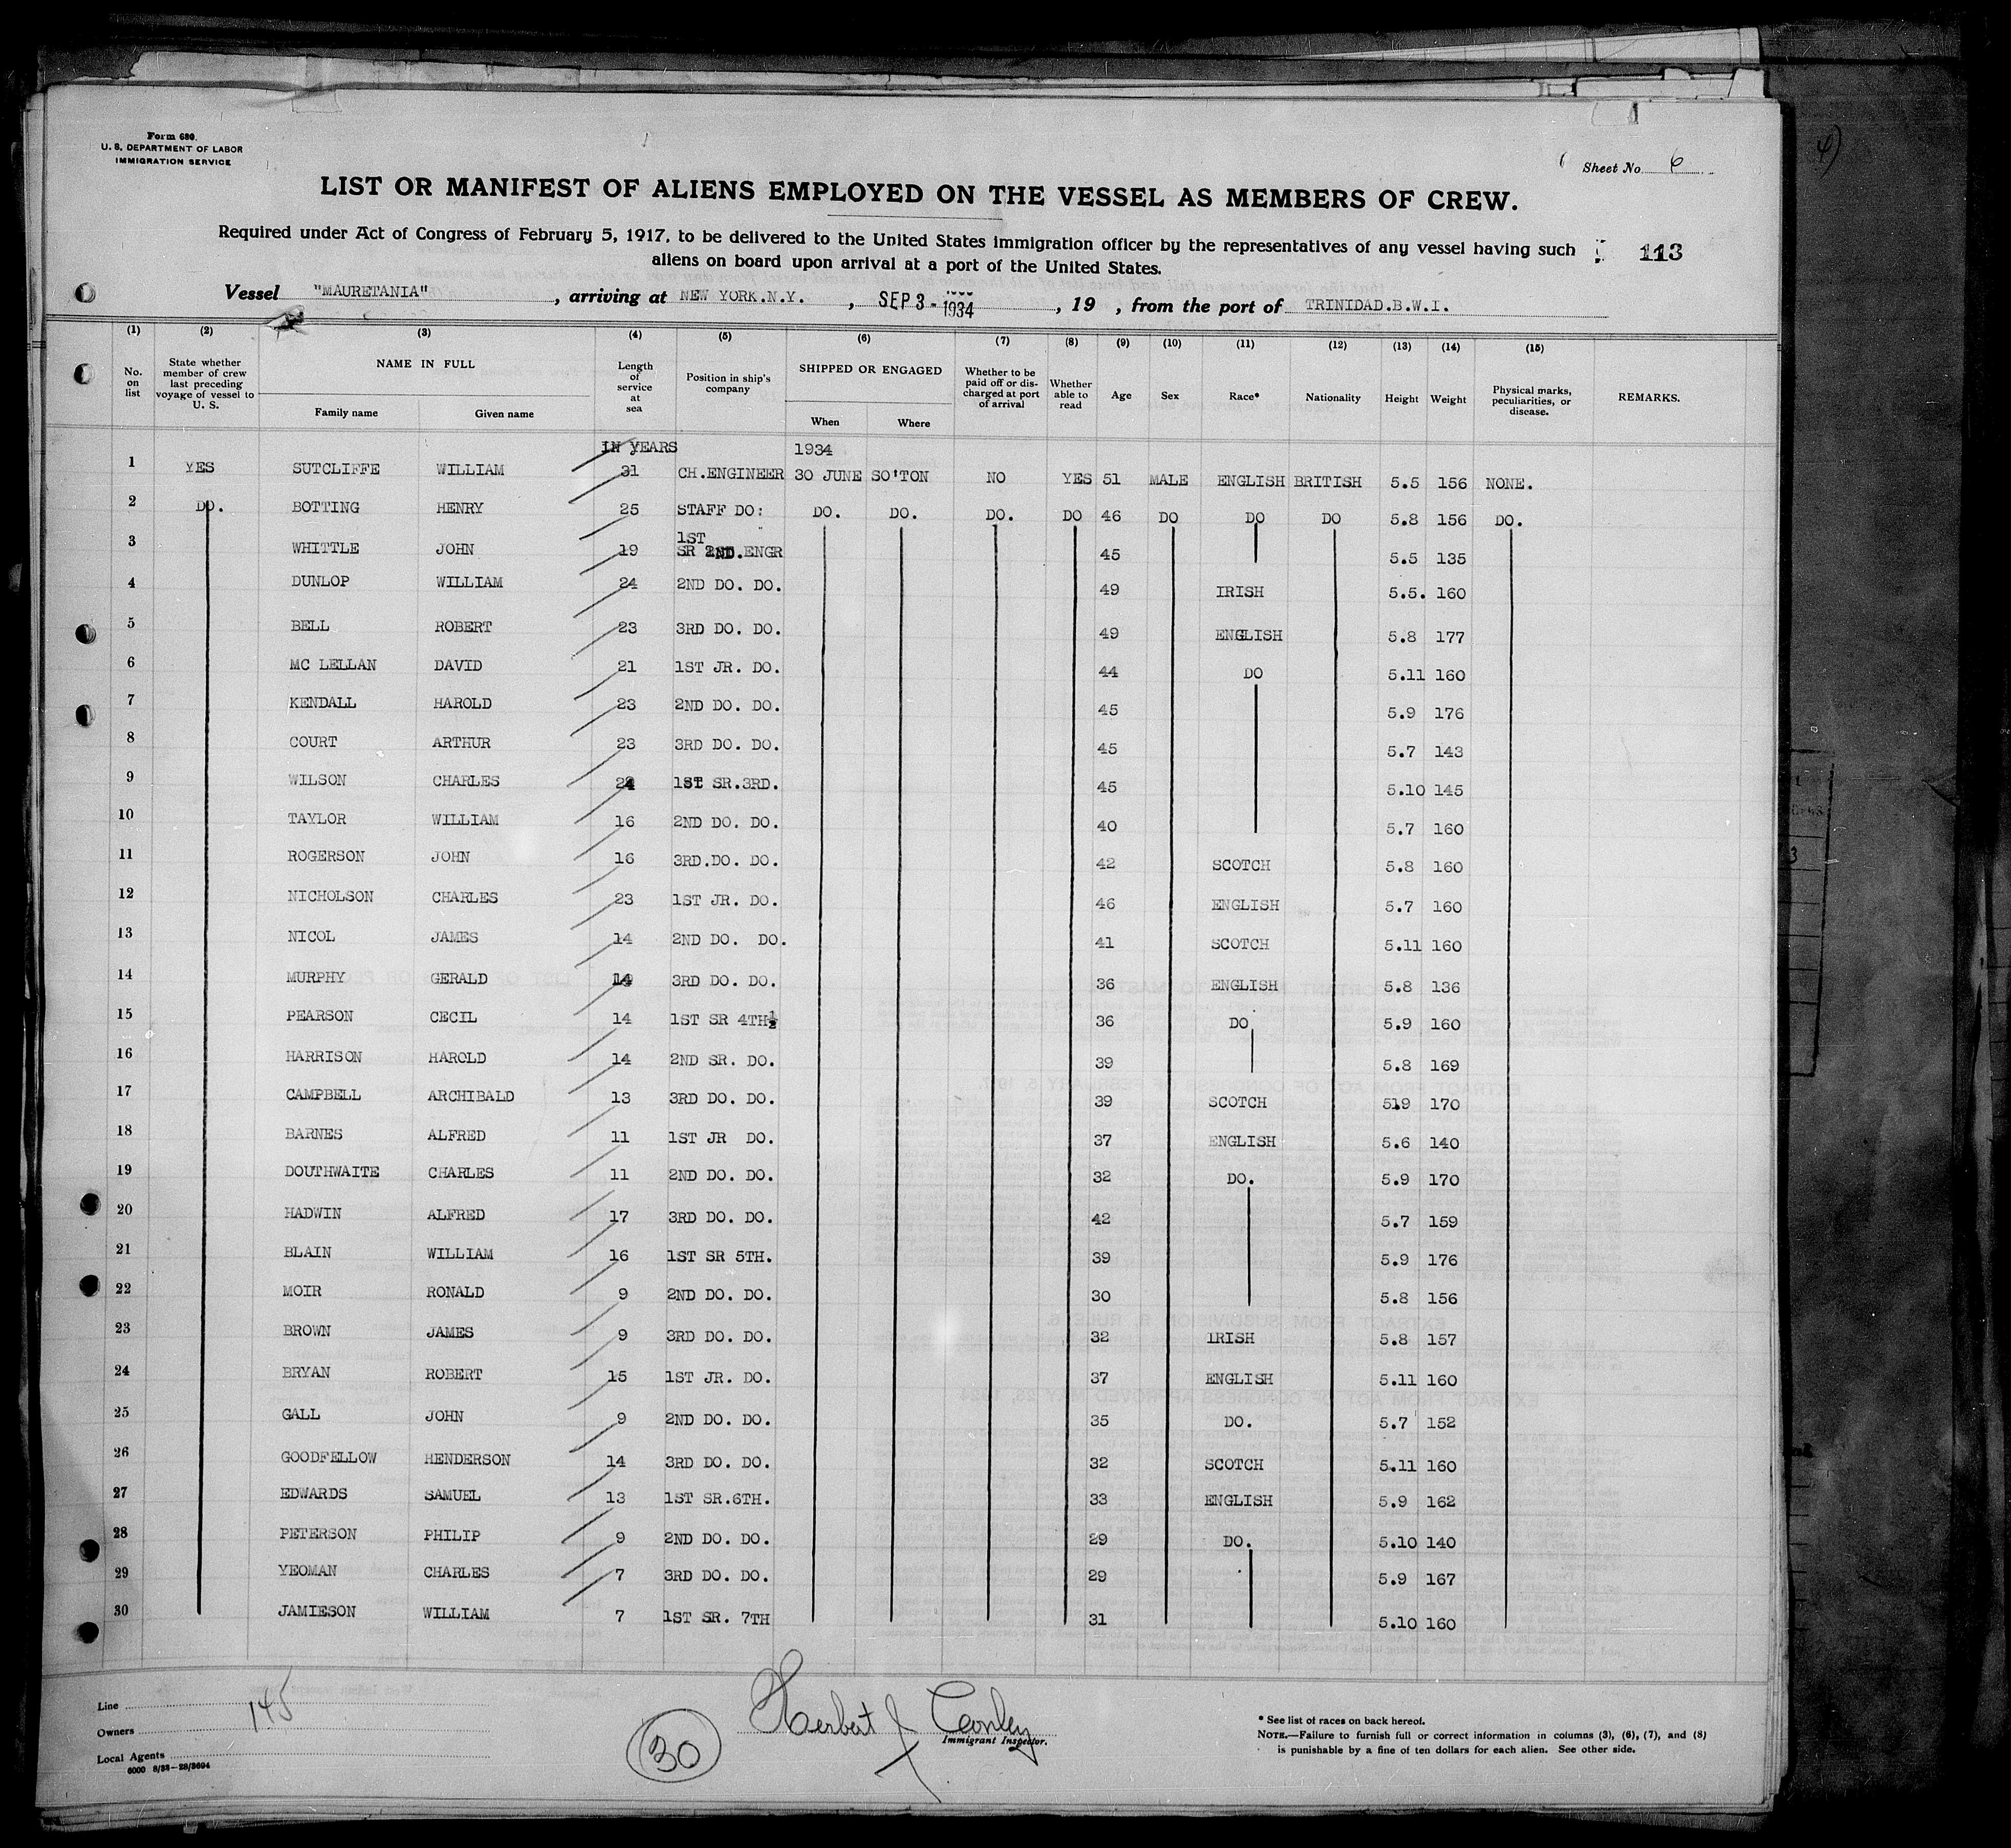 Form 680
U. S. DEPARTMENT OF LABOR
IMMIGRATION SERVICE
Sheet No. 6
LIST OR MANIFEST OF ALIENS EMPLOYED ON THE VESSEL AS MEMBERS OF CREW.
Required under Act of Congress of February 5, 1917, to be delivered to the United States immigration officer by the representatives of any vessel having such
aliens on board upon arrival at a port of the United States.
113
Vessel "MAURETANIA", arriving at NEW YORK.N.Y., SEP 3 - 1934, 19 , from the port of TRINIDAD.B.W.I.
(1) (2) (3) (4) (5) (6) (7) (8) (9) (10) (11) (12) (13) (14) (15)
No. on list
State whether member of crew last preceding voyage of vessel to U. S.
NAME IN FULL
Family name Given name
Length of service at sea
Position in ship's company
SHIPPED OR ENGAGED
When Where
Whether to be paid off or discharged at port of arrival
Whether able to read
Age Sex Race* Nationality Height Weight
Physical marks, peculiarities, or disease.
REMARKS.
IN YEARS 1934
1 YES SUTCLIFFE WILLIAM 31 CH.ENGINEER 30 JUNE SO'TON NO YES 51 MALE ENGLISH BRITISH 5.5 156 NONE.
2 DO. BOTTING HENRY 25 STAFF DO: DO. DO. DO. DO 46 DO DO DO 5.8 156 DO.
3 WHITTLE JOHN 19 1ST SR 2ND.ENGR 45 5.5 135
4 DUNLOP WILLIAM 24 2ND DO. DO. 49 IRISH 5.5. 160
5 BELL ROBERT 23 3RD DO. DO. 49 ENGLISH 5.8 177
6 MC LELLAN DAVID 21 1ST JR. DO. 44 DO 5.11 160
7 KENDALL HAROLD 23 2ND DO. DO. 45 5.9 176
8 COURT ARTHUR 23 3RD DO. DO. 45 5.7 143
9 WILSON CHARLES 24 1ST SR.3RD. 45 5.10 145
10 TAYLOR WILLIAM 16 2ND DO. DO. 40 5.7 160
11 ROGERSON JOHN 16 3RD.DO. DO. 42 SCOTCH 5.8 160
12 NICHOLSON CHARLES 23 1ST JR. DO. 46 ENGLISH 5.7 160
13 NICOL JAMES 14 2ND DO. DO. 41 SCOTCH 5.11 160
14 MURPHY GERALD 14 3RD DO. DO. 36 ENGLISH 5.8 136
15 PEARSON CECIL 14 1ST SR 4TH½ 36 DO 5.9 160
16 HARRISON HAROLD 14 2ND SR. DO. 39 5.8 169
17 CAMPBELL ARCHIBALD 13 3RD DO. DO. 39 SCOTCH 519 170
18 BARNES ALFRED 11 1ST JR DO. 37 ENGLISH 5.6 140
19 DOUTHWAITE CHARLES 11 2ND DO. DO. 32 DO. 5.9 170
20 HADWIN ALFRED 17 3RD DO. DO. 42 5.7 159
21 BLAIN WILLIAM 16 1ST SR 5TH. 39 5.9 176
22 MOIR RONALD 9 2ND DO. DO. 30 5.8 156
23 BROWN JAMES 9 3RD DO. DO. 32 IRISH 5.8 157
24 BRYAN ROBERT 15 1ST JR. DO. 37 ENGLISH 5.11 160
25 GALL JOHN 9 2ND DO. DO. 35 DO. 5.7 152
26 GOODFELLOW HENDERSON 14 3RD DO. DO. 32 SCOTCH 5.11 160
27 EDWARDS SAMUEL 13 1ST SR.6TH. 33 ENGLISH 5.9 162
28 PETERSON PHILIP 9 2ND DO. DO. 29 DO. 5.10 140
29 YEOMAN CHARLES 7 3RD DO. DO. 29 5.9 167
30 JAMIESON WILLIAM 7 1ST SR. 7TH 31 5.10 160
Line
Owners
Local Agents
145
30
Herbert J Conley
Immigrant Inspector.
* See list of races on back hereof.
NOTE.—Failure to furnish full or correct information in columns (3), (6), (7), and (8)
is punishable by a fine of ten dollars for each alien. See other side.